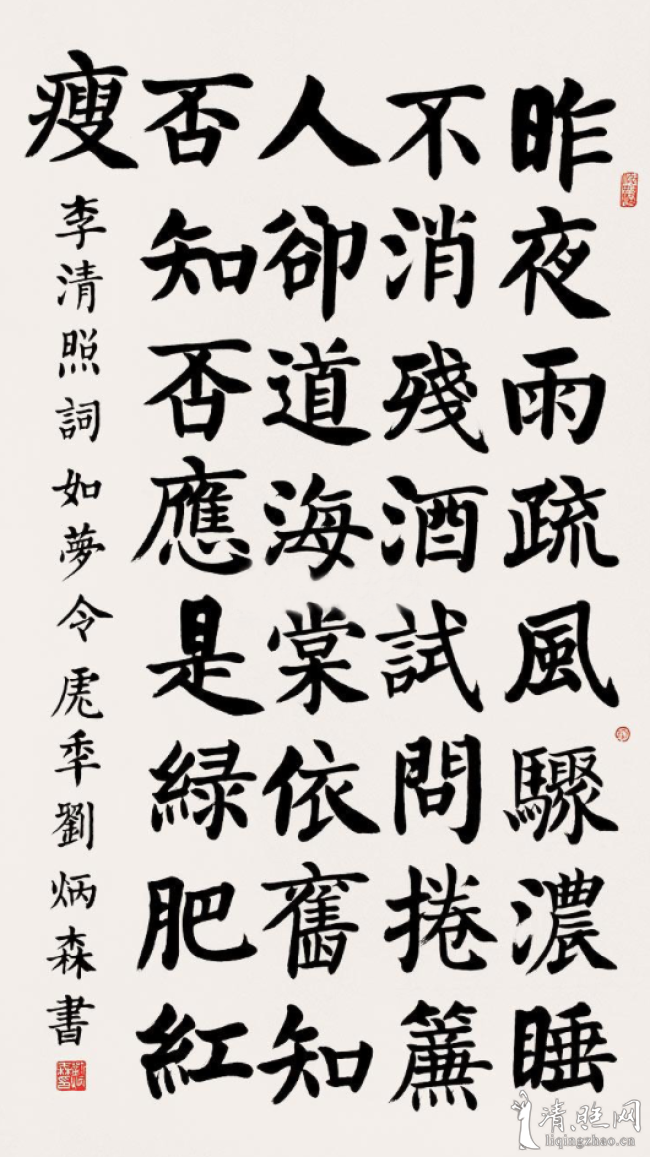 昨夜雨疏風驟濃睡
不消殘酒試問捲簾
人卻道海棠依舊知
否知否應是綠肥紅
瘦
李清照詞如夢令虎年劉炳森書
清照网
liqingzhao.cn